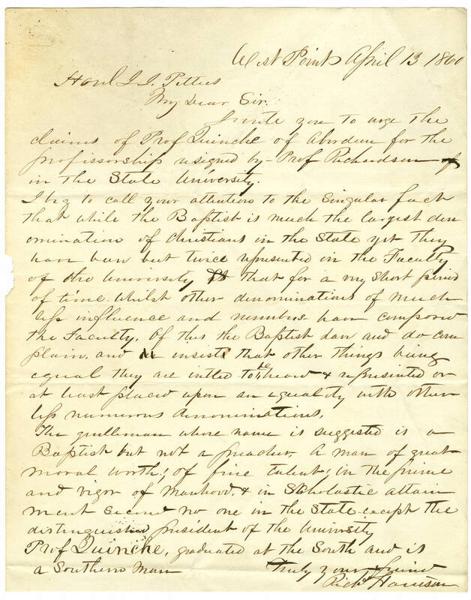 West Point April 13 1860
Honl J. J. Pettus
My Dear Sir.
I write you to urge the
claims of Prof Quinche of Aberdeen for the
professorship resigned by Prof Richardson
in the State University.
I beg to call your attention to the singular fact
that while the Baptist is much the largest den
omination of Christians in the State yet they
have been but twice represented in the Faculty
of the University & that for a my short period
of time. Whilst other denominations of much
less influence and numbers have composed
the Faculty. Of this the Baptist can and do com
plain, and insist that other things being
equal they are intled to be heard & represented or
at least placed upon an equality with other
less numerous denominations.
The gentleman whose name is suggested is a
Baptist but not a preacher. A man of great
moral worth; of fine talent; in the prime
and vigor of manhood, & in Scholastic attain
ment second no one in the State except the
distinguished president of the University
Prof Quinche, graduated at the South and is
a Southern man
Truly your friend
Richd Harrison